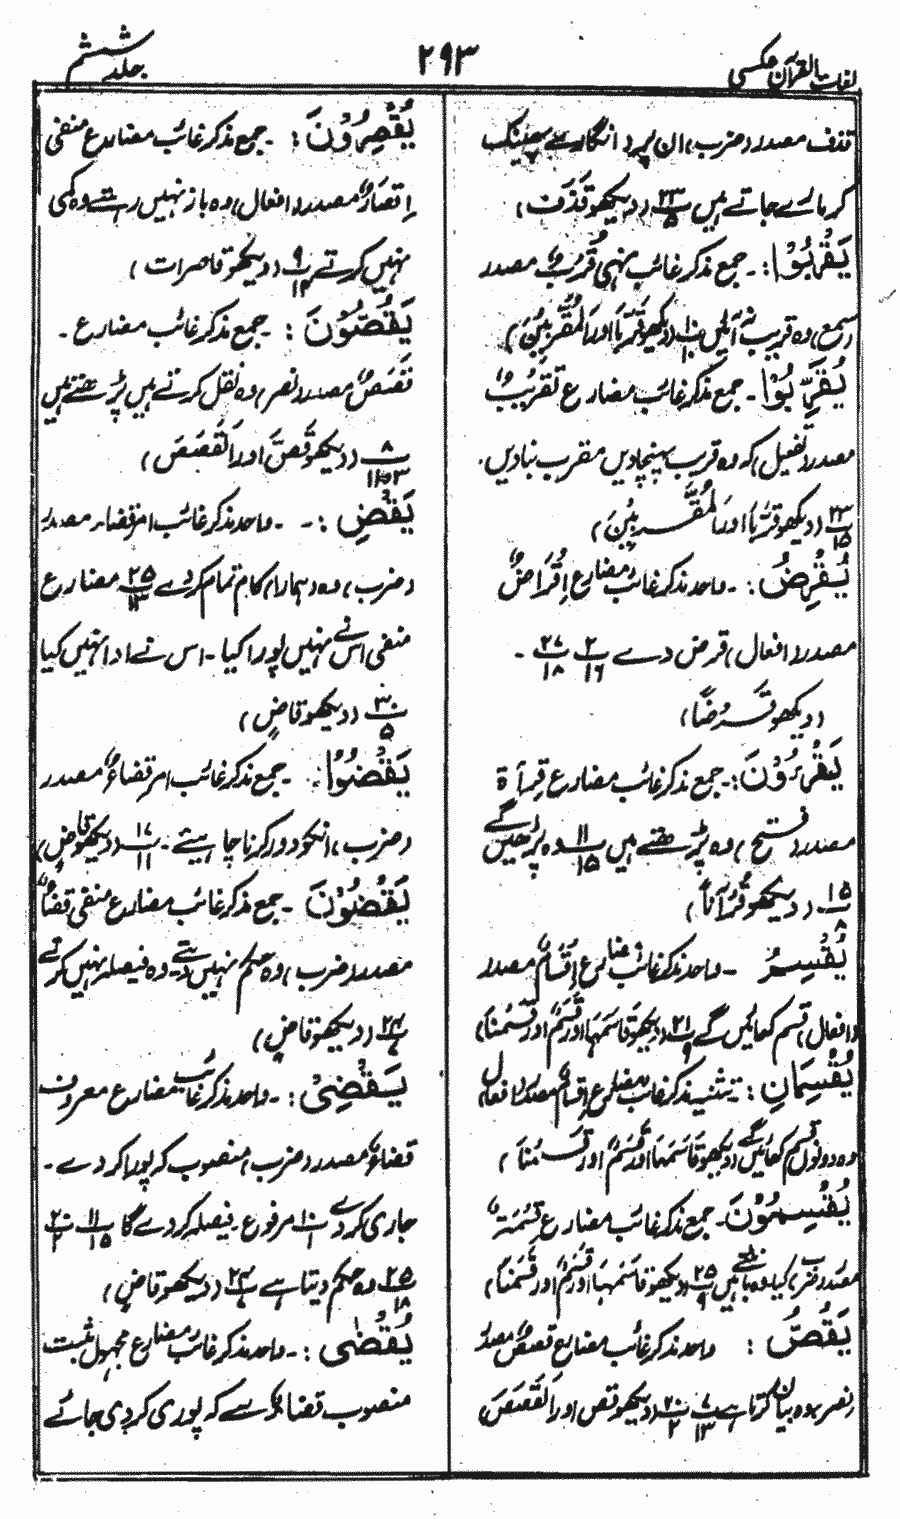 لغات القرآن عکسی
۲۹۳
جلد ششم
قذف مصدر (ضرب) ان پر (د) انگارے پھینک
کر مارے جاتے ہیں ۲۳/۵ (دیکھو قَذَفَ)
یَقْرَبُوْا :- جمع مذکر غائب نہی قُرْبٌ مصدر
(سمع) وہ قریب نہ آئیں ۱۰/۱۰ (دیکھو قَرَّبَا اور اَلْمُقَرَّبِیْنَ)
یُقَرِّبُوْا :- جمع مذکر غائب مضارع تَقْرِیْبٌ
مصدر (تفعیل) کہ وہ قریب پہنچا دیں مقرب بنا دیں.
۲۳/۱۵ (دیکھو قَرَّبَا اور اَلْمُقَرَّبِیْنَ)
یُقْرِضُ :- واحد مذکر غائب مضارع اِقْرَاضٌ
مصدر (افعال) قرض دے ۲/۱۶ ۲۷/۱۸ -
(دیکھو قَرْضًا)
یَقْرَءُوْنَ :- جمع مذکر غائب مضارع قِرَأَۃ
مصدر (فتح) وہ پڑھتے ہیں ۱۱/۱۵ وہ پڑھیں گے
۱۵/۸ (دیکھو قُرْاٰنًا)
یُقْسِمُ - واحد مذکر غائب مضارع اِقْسَامٌ مصدر
(افعال) قسم کھائیں گے ۲۱/۹ (دیکھو قَاسَمَهُمَا اور قَسَمٌ اور قَسَمْنَا)
یُقْسِمَانِ :- تثنیہ مذکر غائب مضارع اِقْسَام مصدر (افعال)
وہ دونوں قسم کھائیں گے (دیکھو قَاسَمَهُمَا اور قَسَمٌ اور قَسَمْنَا)
یَقْسِمُوْنَ - جمع مذکر غائب مضارع قِسْمَةٌ
مصدر (ضرب) کیا وہ بانٹتے ہیں ۲۵/۹ (دیکھو قَاسَمَهُمَا اور قَسَمٌ اور قَسَمْنَا)
یَقُصُّ : واحد مذکر غائب مضارع قصص مصدر
(نصر) وہ بیان کرتا ہے ۷/۱۳ ۲۰/۲ (دیکھو قص اور اَلْقَصَصَ)
یُقْصِرُوْنَ :- جمع مذکر غائب مضارع منفی
اِقْصَارٌ مصدر (افعال) وہ باز نہیں رہتے وہ کمی
نہیں کرتے ۹/۱۴ (دیکھو قاصرات)
یَقُصُّوْنَ :- جمع مذکر غائب مضارع -
قَصَصٌ مصدر (نصر) وہ نقل کرتے ہیں پڑھتے ہیں
۸/۱۱ و ۳ (دیکھو قَصَّ اور اَلْقَصَصَ)
یَقْضِ :- - واحد مذکر غائب امر قضاء مصدر
(ضرب) وہ ہمارا کام تمام کر دے ۲۵/۱۳ مضارع
منفی اس نے نہیں پورا کیا - اس نے ادا نہیں کیا
۳۰/۵ (دیکھو قاضٍ)
یَقْضُوْا :- جمع مذکر غائب امر قضاءٌ مصدر
(ضرب) انکو دور کرنا چاہیئے - ۱۷/۱۱ (دیکھو قاضٍ)
یَقْضُوْنَ - جمع مذکر غائب مضارع منفی قضاءٌ
مصدر (ضرب) وہ حکم نہیں دیتے - وہ فیصلہ نہیں کرتے
۲۴/۷ (دیکھو قاضٍ)
یَقْضِیْ :- واحد مذکر غائب مضارع معروف
قضاءٌ مصدر (ضرب) منصوب کہ پورا کر دے -
جاری کر دے ۱۰/۱ مرفوع - فیصلہ کر دے گا ۱۱/۱۵ ۲۰/۲
۲۵/۱۸ وہ حکم دیتا ہے ۲۴/۷ (دیکھو قاضٍ)
یُقْضٰی :- واحد مذکر غائب مضارع مجہول مثبت
منصوب قضاءٌ سے کہ پوری کر دی جائے